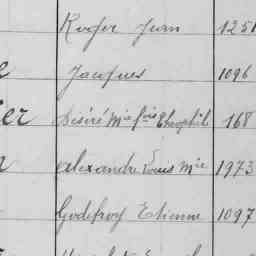 Roger Jean 1251
e Jacques 1096
er Désiré Mie fois Théophile 168
Alexandre Louis Mie 1973
Godefroy Etienne 1097